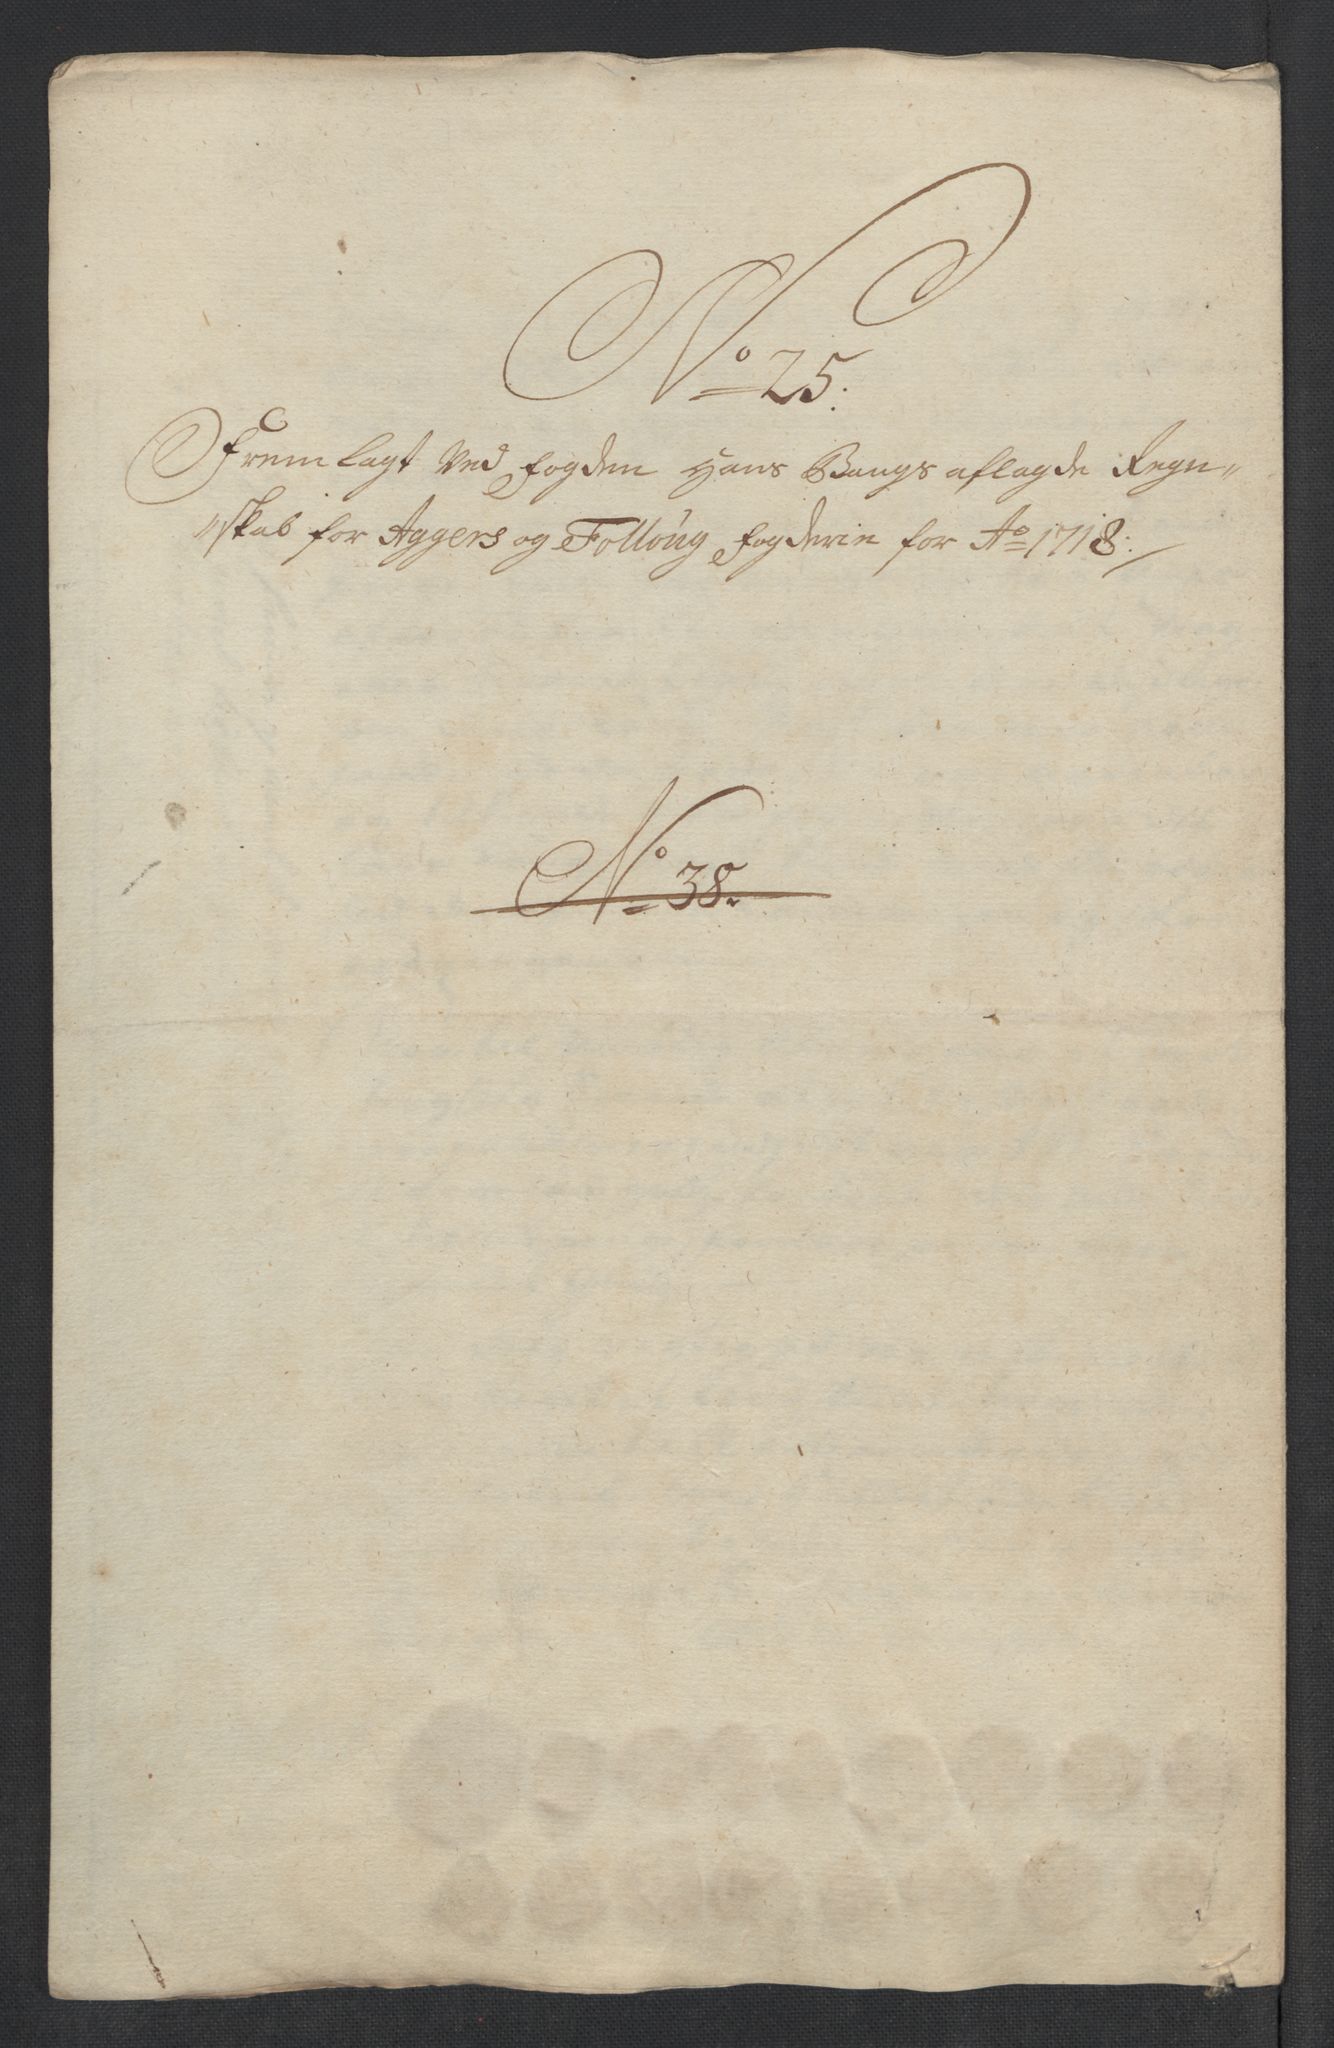 No 25.
Fremlagt Ved fogden Hans Bangs aflagde Regn„
„skab for Aggers og Follóug fogderie for Ao 1718.
No 38.